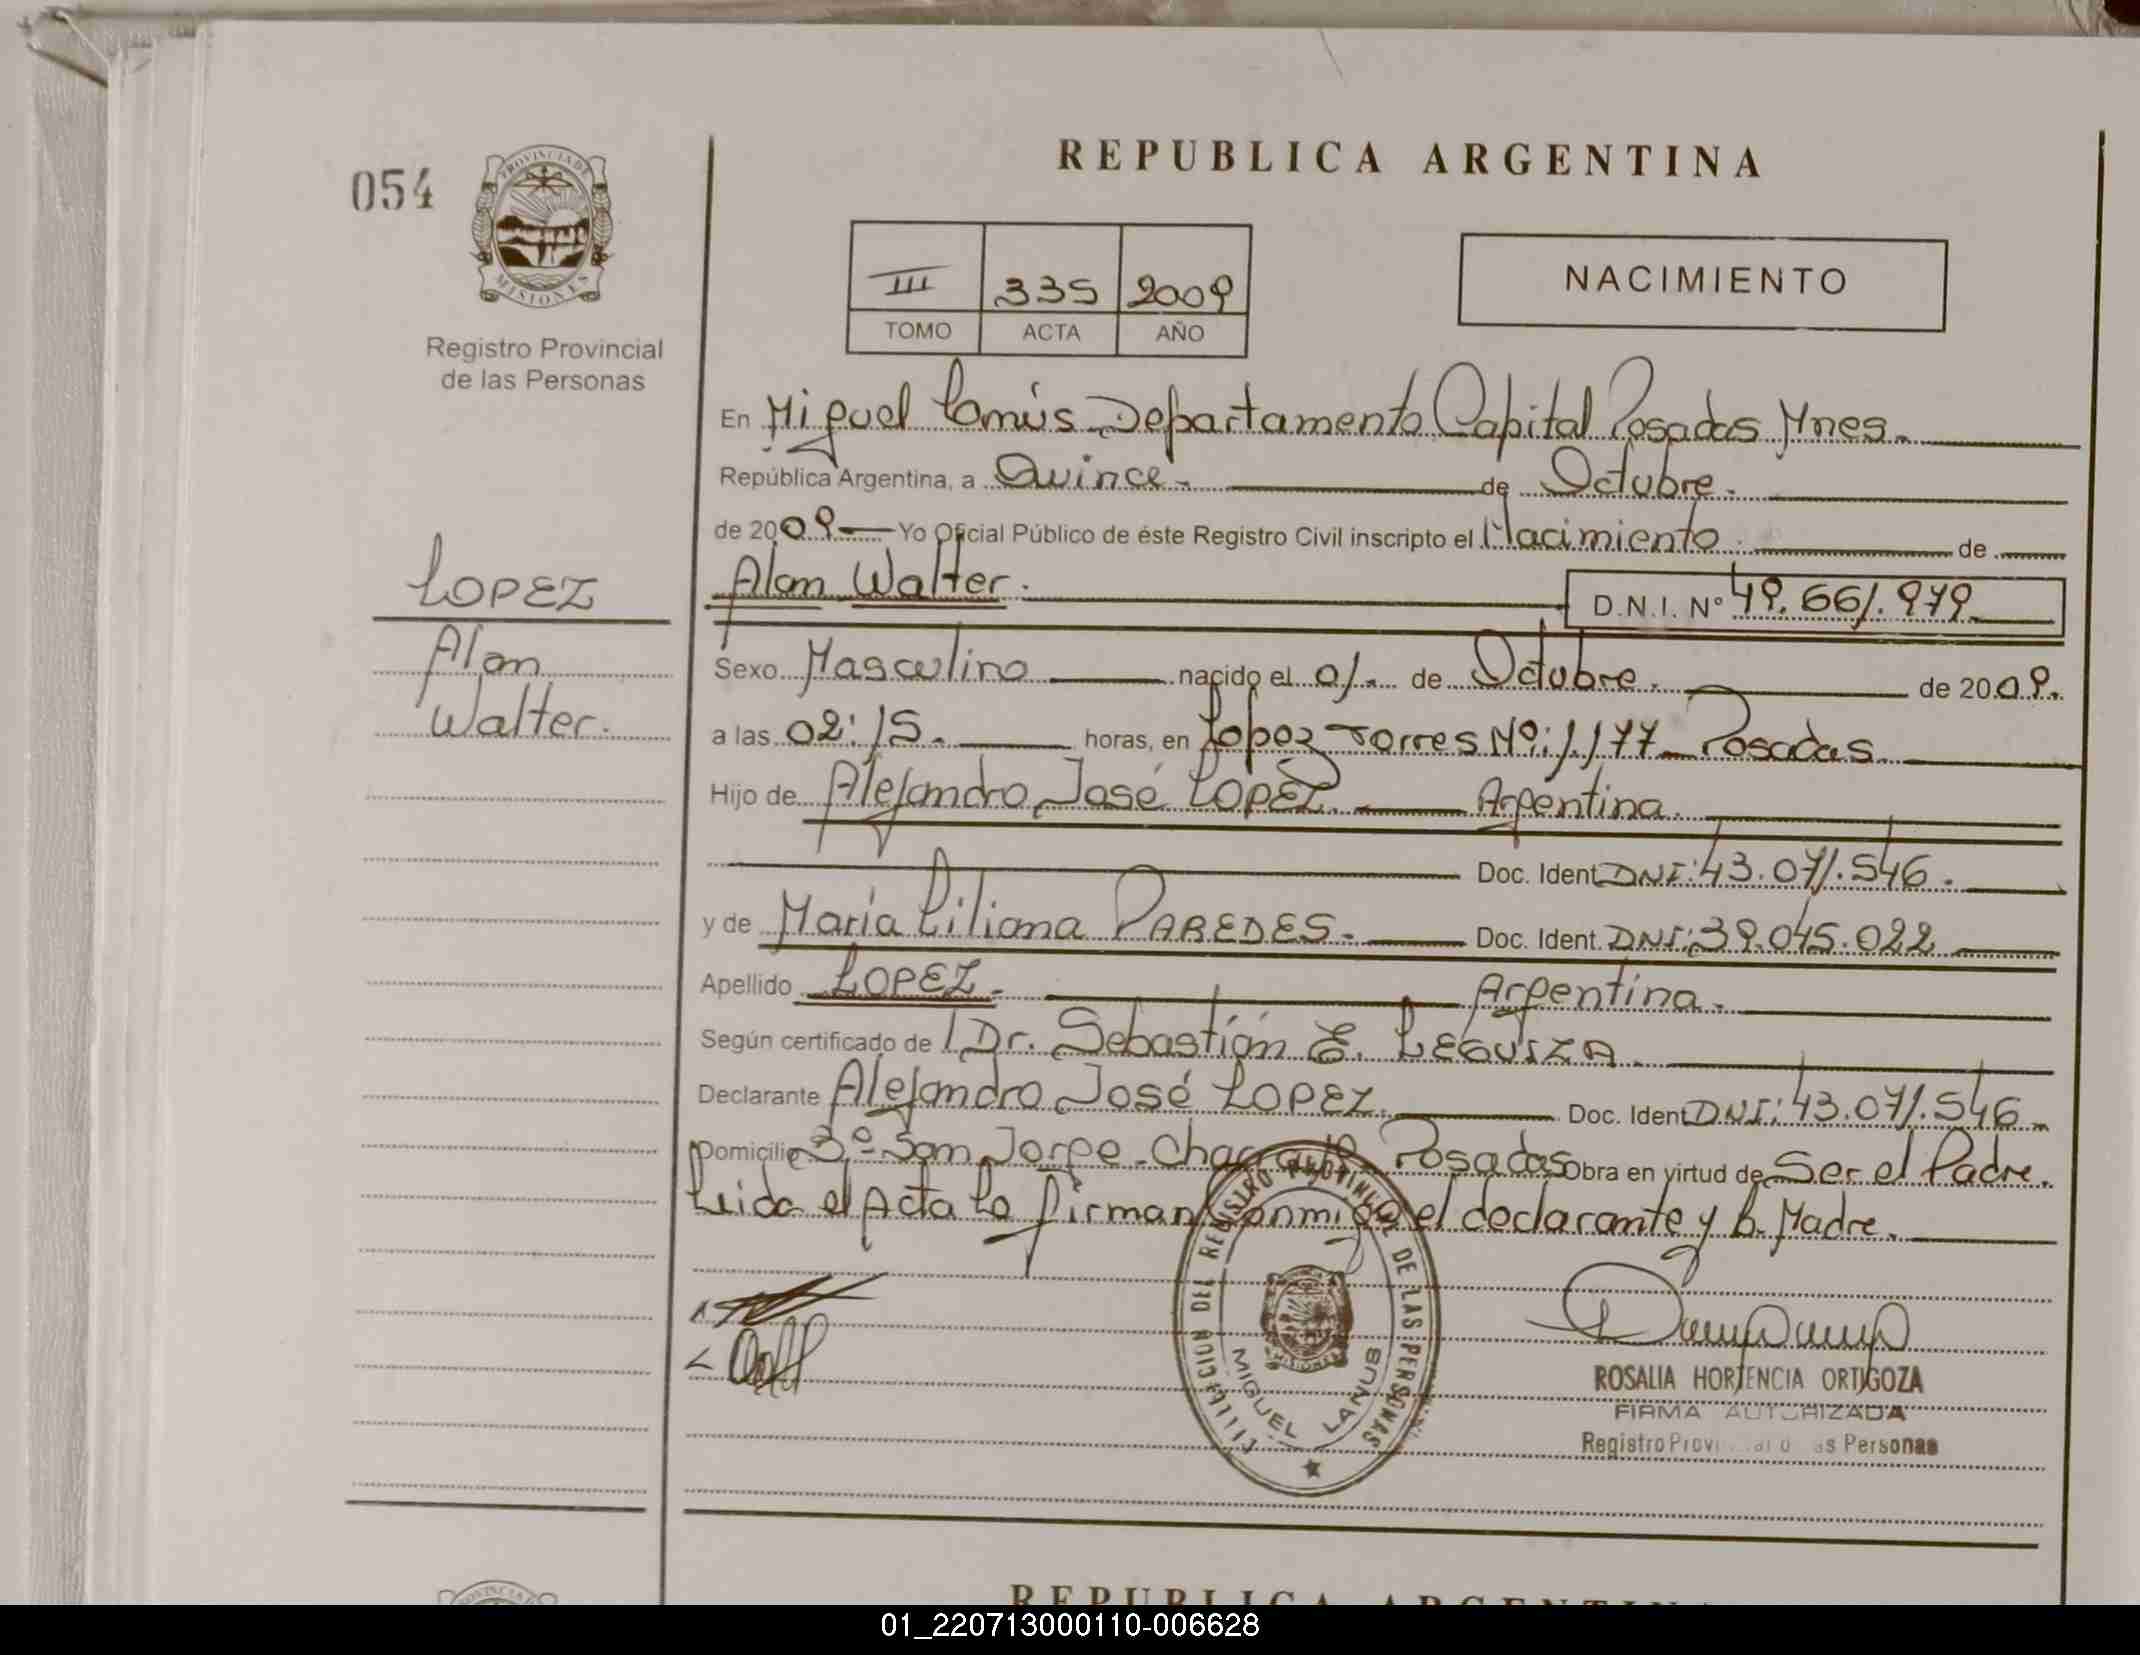 REPUBLICA ARGENTINA
054
PROVINCIA DE
MISIONES
Registro Provincial
de las Personas
III 335 2009
TOMO ACTA AÑO
NACIMIENTO
En Miguel Lanús Departamento Capital Posadas Mnes.
República Argentina, a Quince. de Octubre.
de 2009 Yo Oficial Público de éste Registro Civil inscripto el Nacimiento de
Alan Walter. D.N.I. Nº 49.661.979
LOPEZ
Alan
Walter.
Sexo Masculino nacido el 01. de Octubre. de 2009.
a las 02:15. horas, en López Torres Nº: 1.177 Posadas
Hijo de Alejandro José LOPEZ. Argentina.
Doc. Ident DNI: 43.071.546.
y de María Liliana PAREDES. Doc. Ident. DNI: 39.045.022
Apellido LOPEZ. Argentina.
Según certificado de Dr. Sebastián E. LEGUIZA.
Declarante Alejandro José LOPEZ. Doc. Ident DNI: 43.071.546
Domicilio San Jorge. Posadas Obra en virtud de Ser el Padre.
Leida el Acta La firman conmigo el declarante y la Madre.
DEL REGISTRO PROVINCIAL DE LAS PERSONAS
MISIONES
MIGUEL LANUS
ROSALIA HORTENCIA ORTIGOZA
FIRMA AUTORIZADA
Registro Provincial de las Personas
REPUBLICA ARGENTINA
01_220713000110-006628